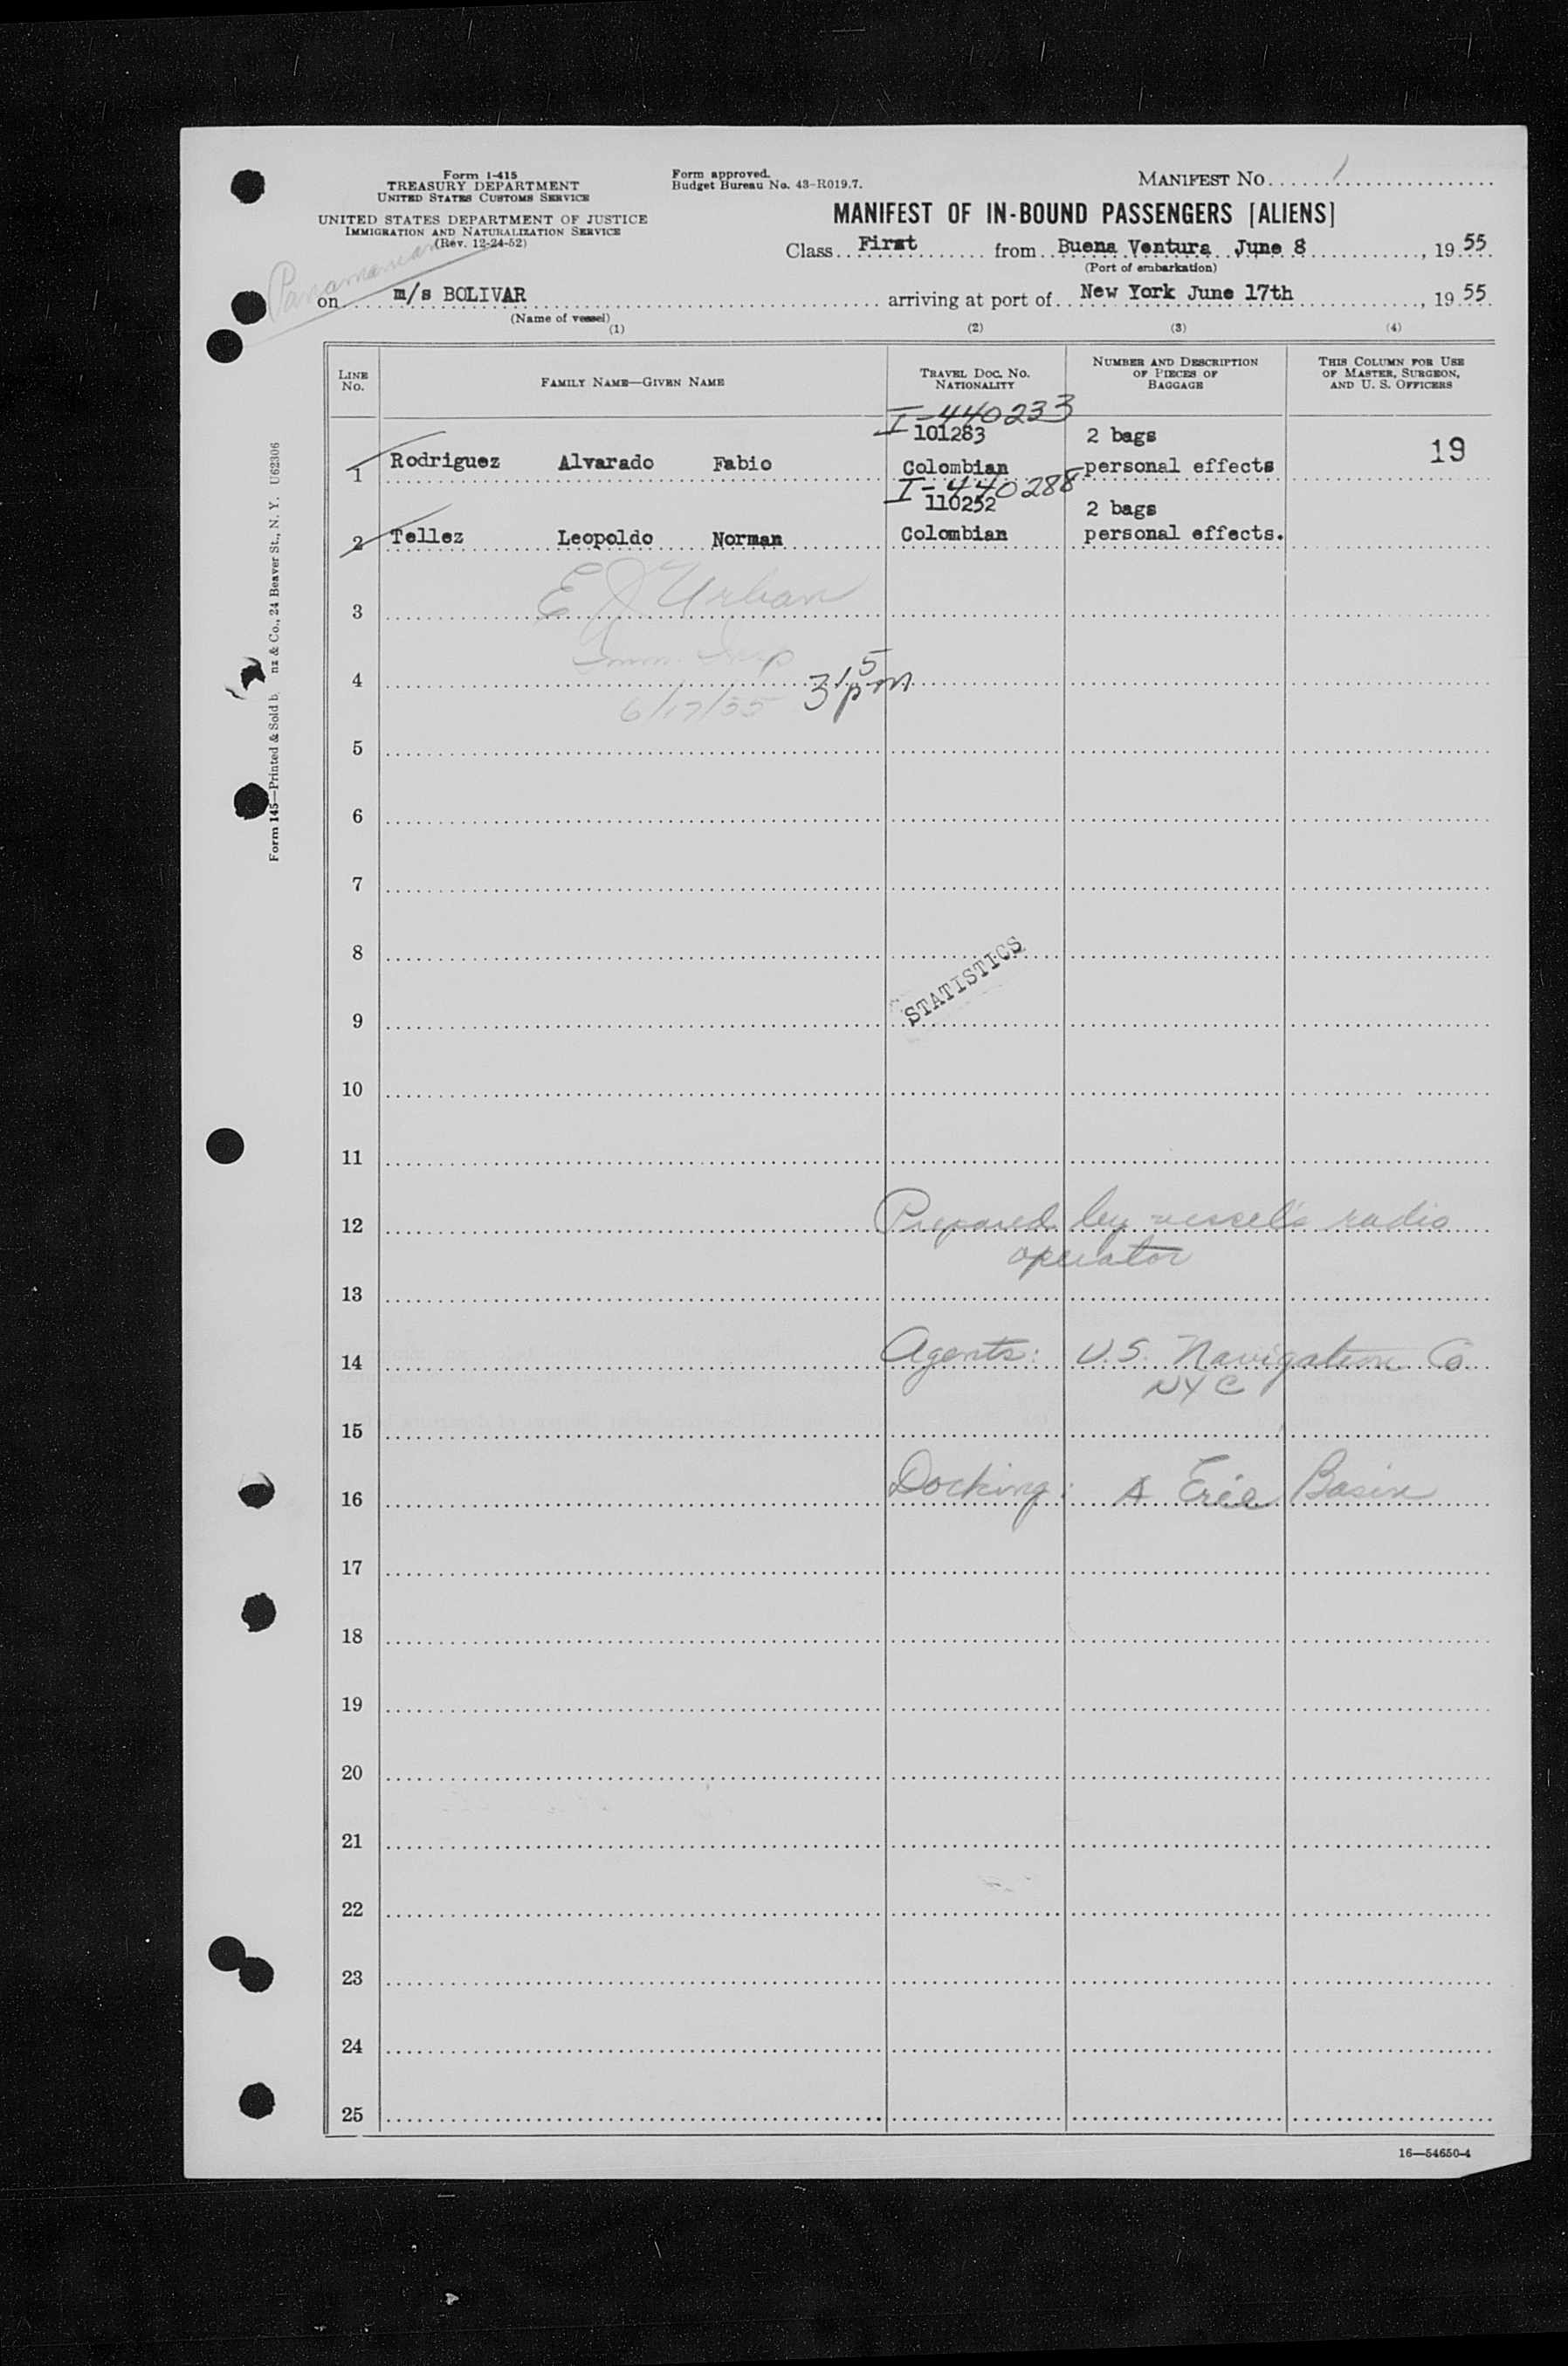 Form I-415
TREASURY DEPARTMENT
UNITED STATES CUSTOMS SERVICE
UNITED STATES DEPARTMENT OF JUSTICE
IMMIGRATION AND NATURALIZATION SERVICE
(Rev. 12-24-52)
Form approved.
Budget Bureau No. 43-R019.7.
MANIFEST NO. 1
MANIFEST OF IN-BOUND PASSENGERS [ALIENS]
Class First from Buena Ventura June 8, 19 55
(Port of embarkation)
Panamanian
on m/s BOLIVAR arriving at port of New York June 17th, 19 55
(Name of vessel)
(1) (2) (3) (4)
LINE NO.
FAMILY NAME—GIVEN NAME
TRAVEL DOC. NO. NATIONALITY
NUMBER AND DESCRIPTION OF PIECES OF BAGGAGE
THIS COLUMN FOR USE OF MASTER, SURGEON, AND U. S. OFFICERS
I-440233
101283 2 bags
1 Rodriguez Alvarado Fabio Colombian personal effects 19
I-440288
110252 2 bags
2 Tellez Leopoldo Norman Colombian personal effects.
3 E J Urban
Imm. Insp
4 3 15 pm
6/17/55
5
6
7
8
STATISTICS
9
10
11
12 Prepared by vessel's radio
operator
13
14 Agents: U.S. Navigation Co
NYC
15
16 Docking: Erie Basin
17
18
19
20
21
22
23
24
25
16—54650-4
Form 145—Printed & Sold b nz & Co., 24 Beaver St., N. Y. U62306